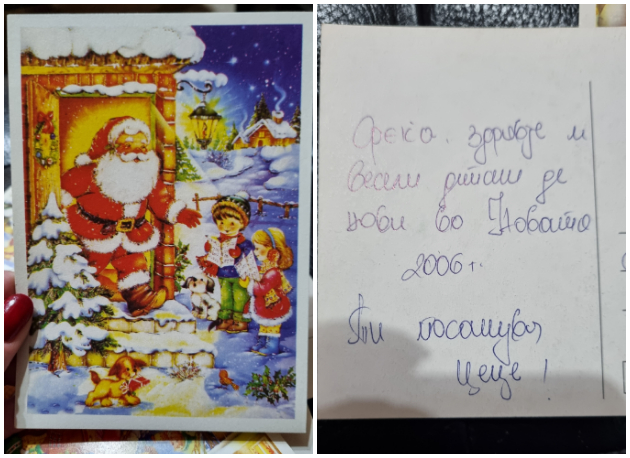 Среќа. здравје и
весели дитаси де
ноби во Новата
2006 г.
Ти посакува
Цеце!